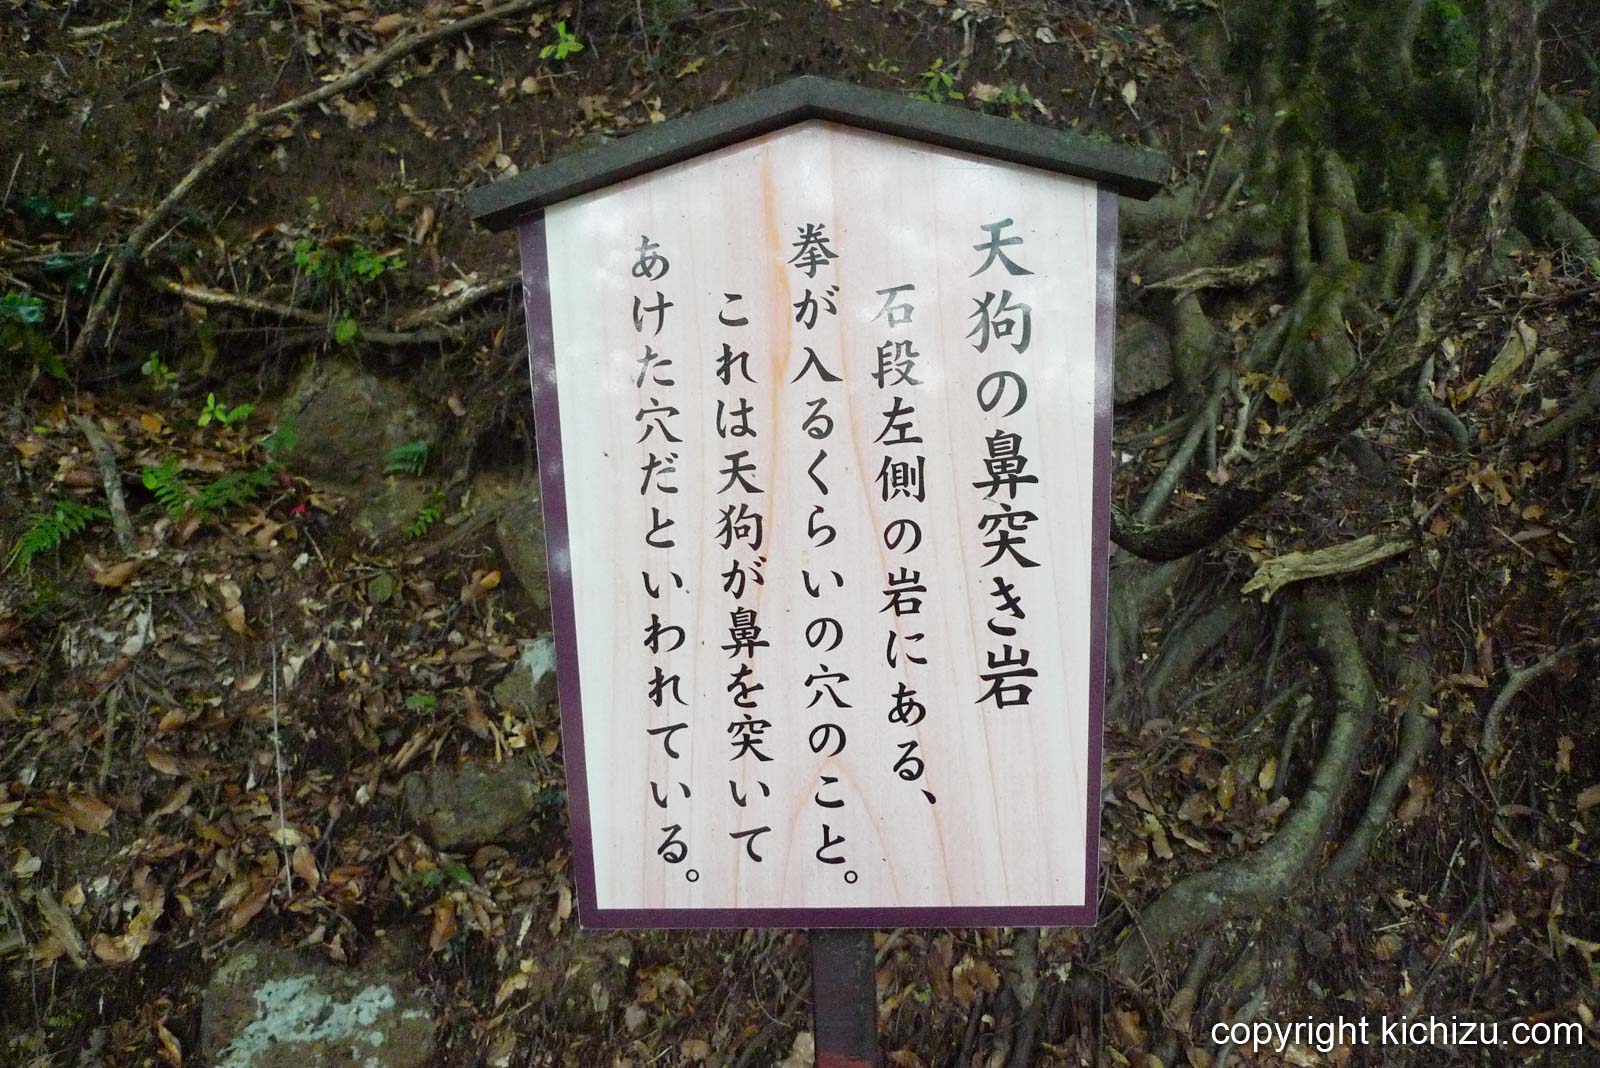 天狗の鼻突き岩
石段左側の岩にある、
拳が入るくらいの穴のこと。
これは天狗が鼻を突いて
あけた穴だといわれている。
copyright kichizu.com